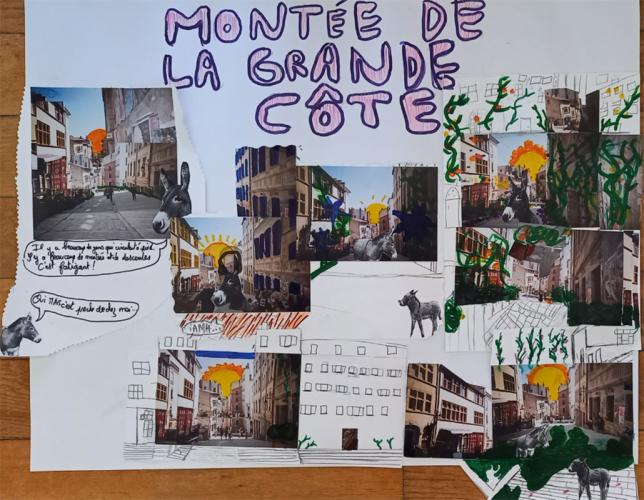 MONTÉE DE
LA GRANDE
CÔTE
Il y a beaucoup de gens qui circulent à pied.
Il y a Beaucoup de montées et de descentes
C'est fatigant!
Oui MAis c'est